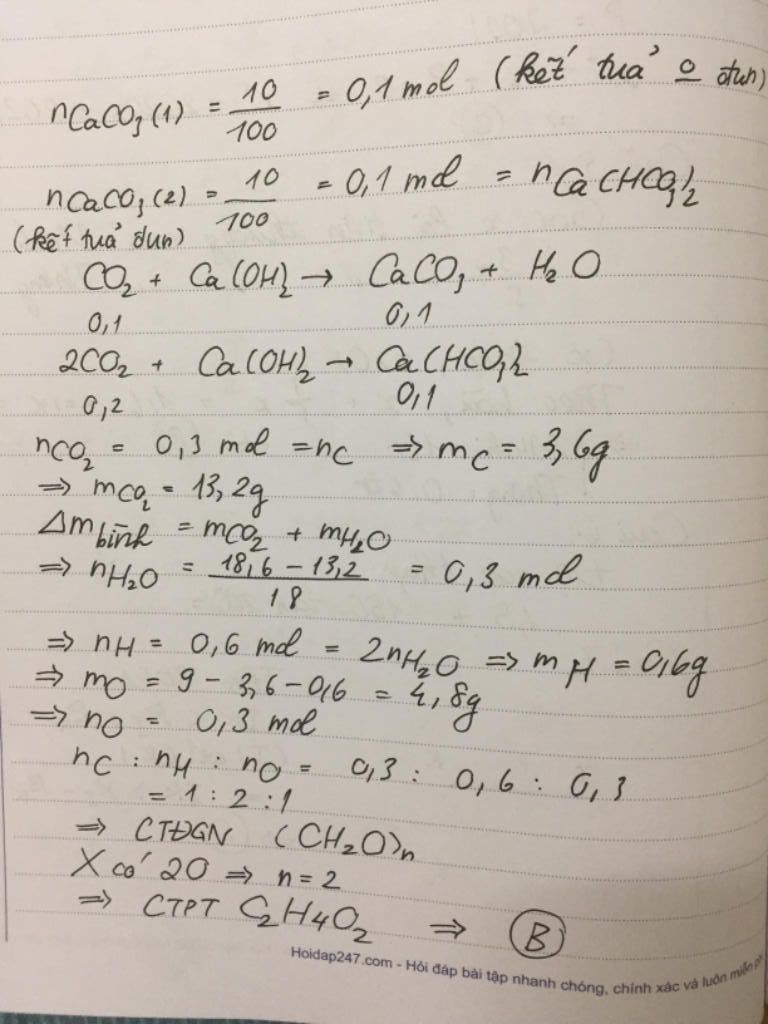 nCaCO3 (1) = 10/100 = 0,1 mol (kết tủa o đun)
nCaCO3 (2) = 10/100 = 0,1 mol = nCa(HCO3)2
(kết tủa đun)
CO2 + Ca(OH)2 → CaCO3 + H2O
0,1 0,1
2CO2 + Ca(OH)2 → Ca(HCO3)2
0,2 0,1
nCO2 = 0,3 mol = nC ⇒ mC = 3,6g
⇒ mCO2 = 13,2g
Δm bình = mCO2 + mH2O
⇒ nH2O = (18,6 - 13,2)/18 = 0,3 mol
⇒ nH = 0,6 mol = 2nH2O ⇒ mH = 0,6g
⇒ mO = 9 - 3,6 - 0,6 = 4,8g
⇒ nO = 0,3 mol
nC : nH : nO = 0,3 : 0,6 : 0,3
= 1 : 2 : 1
⇒ CTĐGN (CH2O)n
X có 2O ⇒ n = 2
⇒ CTPT C2H4O2 ⇒ B
Hoidap247.com - Hỏi đáp bài tập nhanh chóng, chính xác và luôn miễn